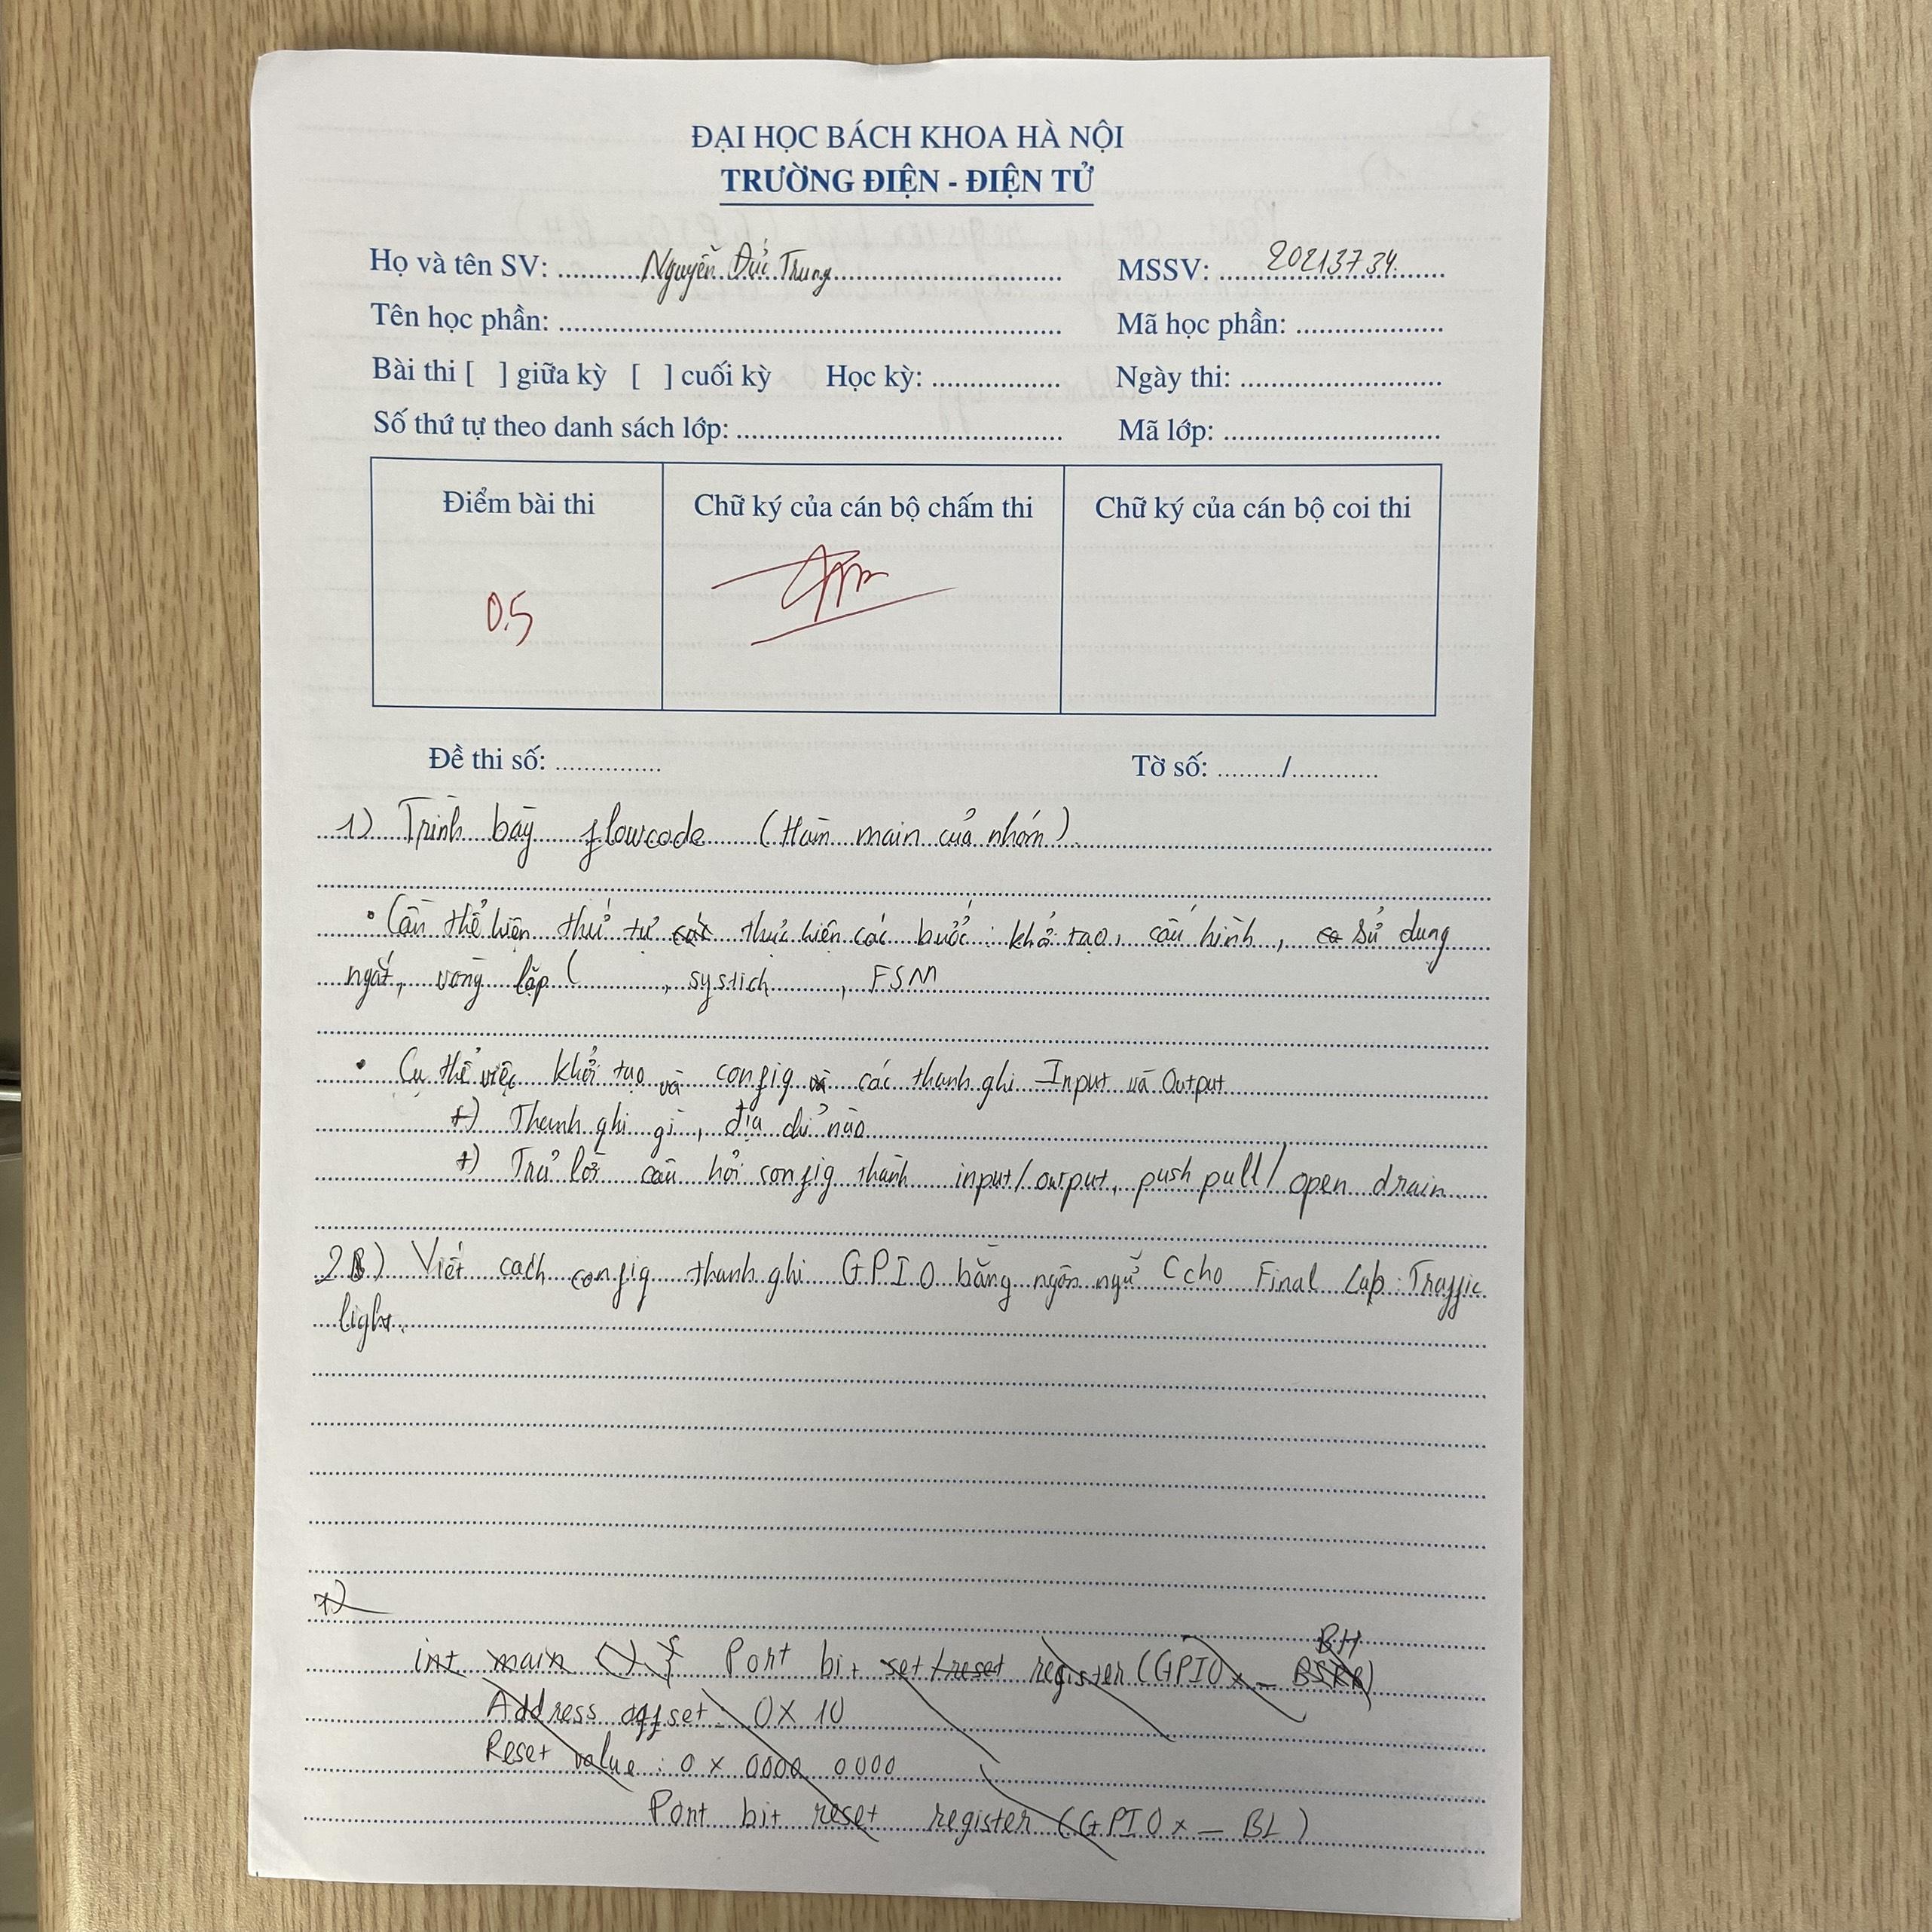 ĐẠI HỌC BÁCH KHOA HÀ NỘI
TRƯỜNG ĐIỆN - ĐIỆN TỬ
Họ và tên SV: Nguyễn Đức Trung MSSV: 20213734
Tên học phần: Mã học phần:
Bài thi [ ] giữa kỳ [ ] cuối kỳ Học kỳ: Ngày thi:
Số thứ tự theo danh sách lớp: Mã lớp:
Điểm bài thi Chữ ký của cán bộ chấm thi Chữ ký của cán bộ coi thi
0.5
Đề thi số: Tờ số: /
1) Trình bày flowcode (Hàm main của nhóm)
• Cần thể hiện thứ tự các thực hiện các bước: khởi tạo, cấu hình, sử dụng
ngắt, vòng lặp ( , systich , FSM
• Cụ thể việc khởi tạo và config và các thanh ghi Input và Output
+) Thanh ghi gì, địa chỉ nào
+) Trả lời câu hỏi config thành input/output, push pull/ open drain
2) Viết cách config thanh ghi GPIO bằng ngôn ngữ C cho Final Lab: Traffic
light.
+)
int main () { Port bit set/reset register (GPIOx_BSRR) BH
Address offset: 0X 10
Reset value: 0x 0000 0000
Port bit reset register (GPIOx_BL)